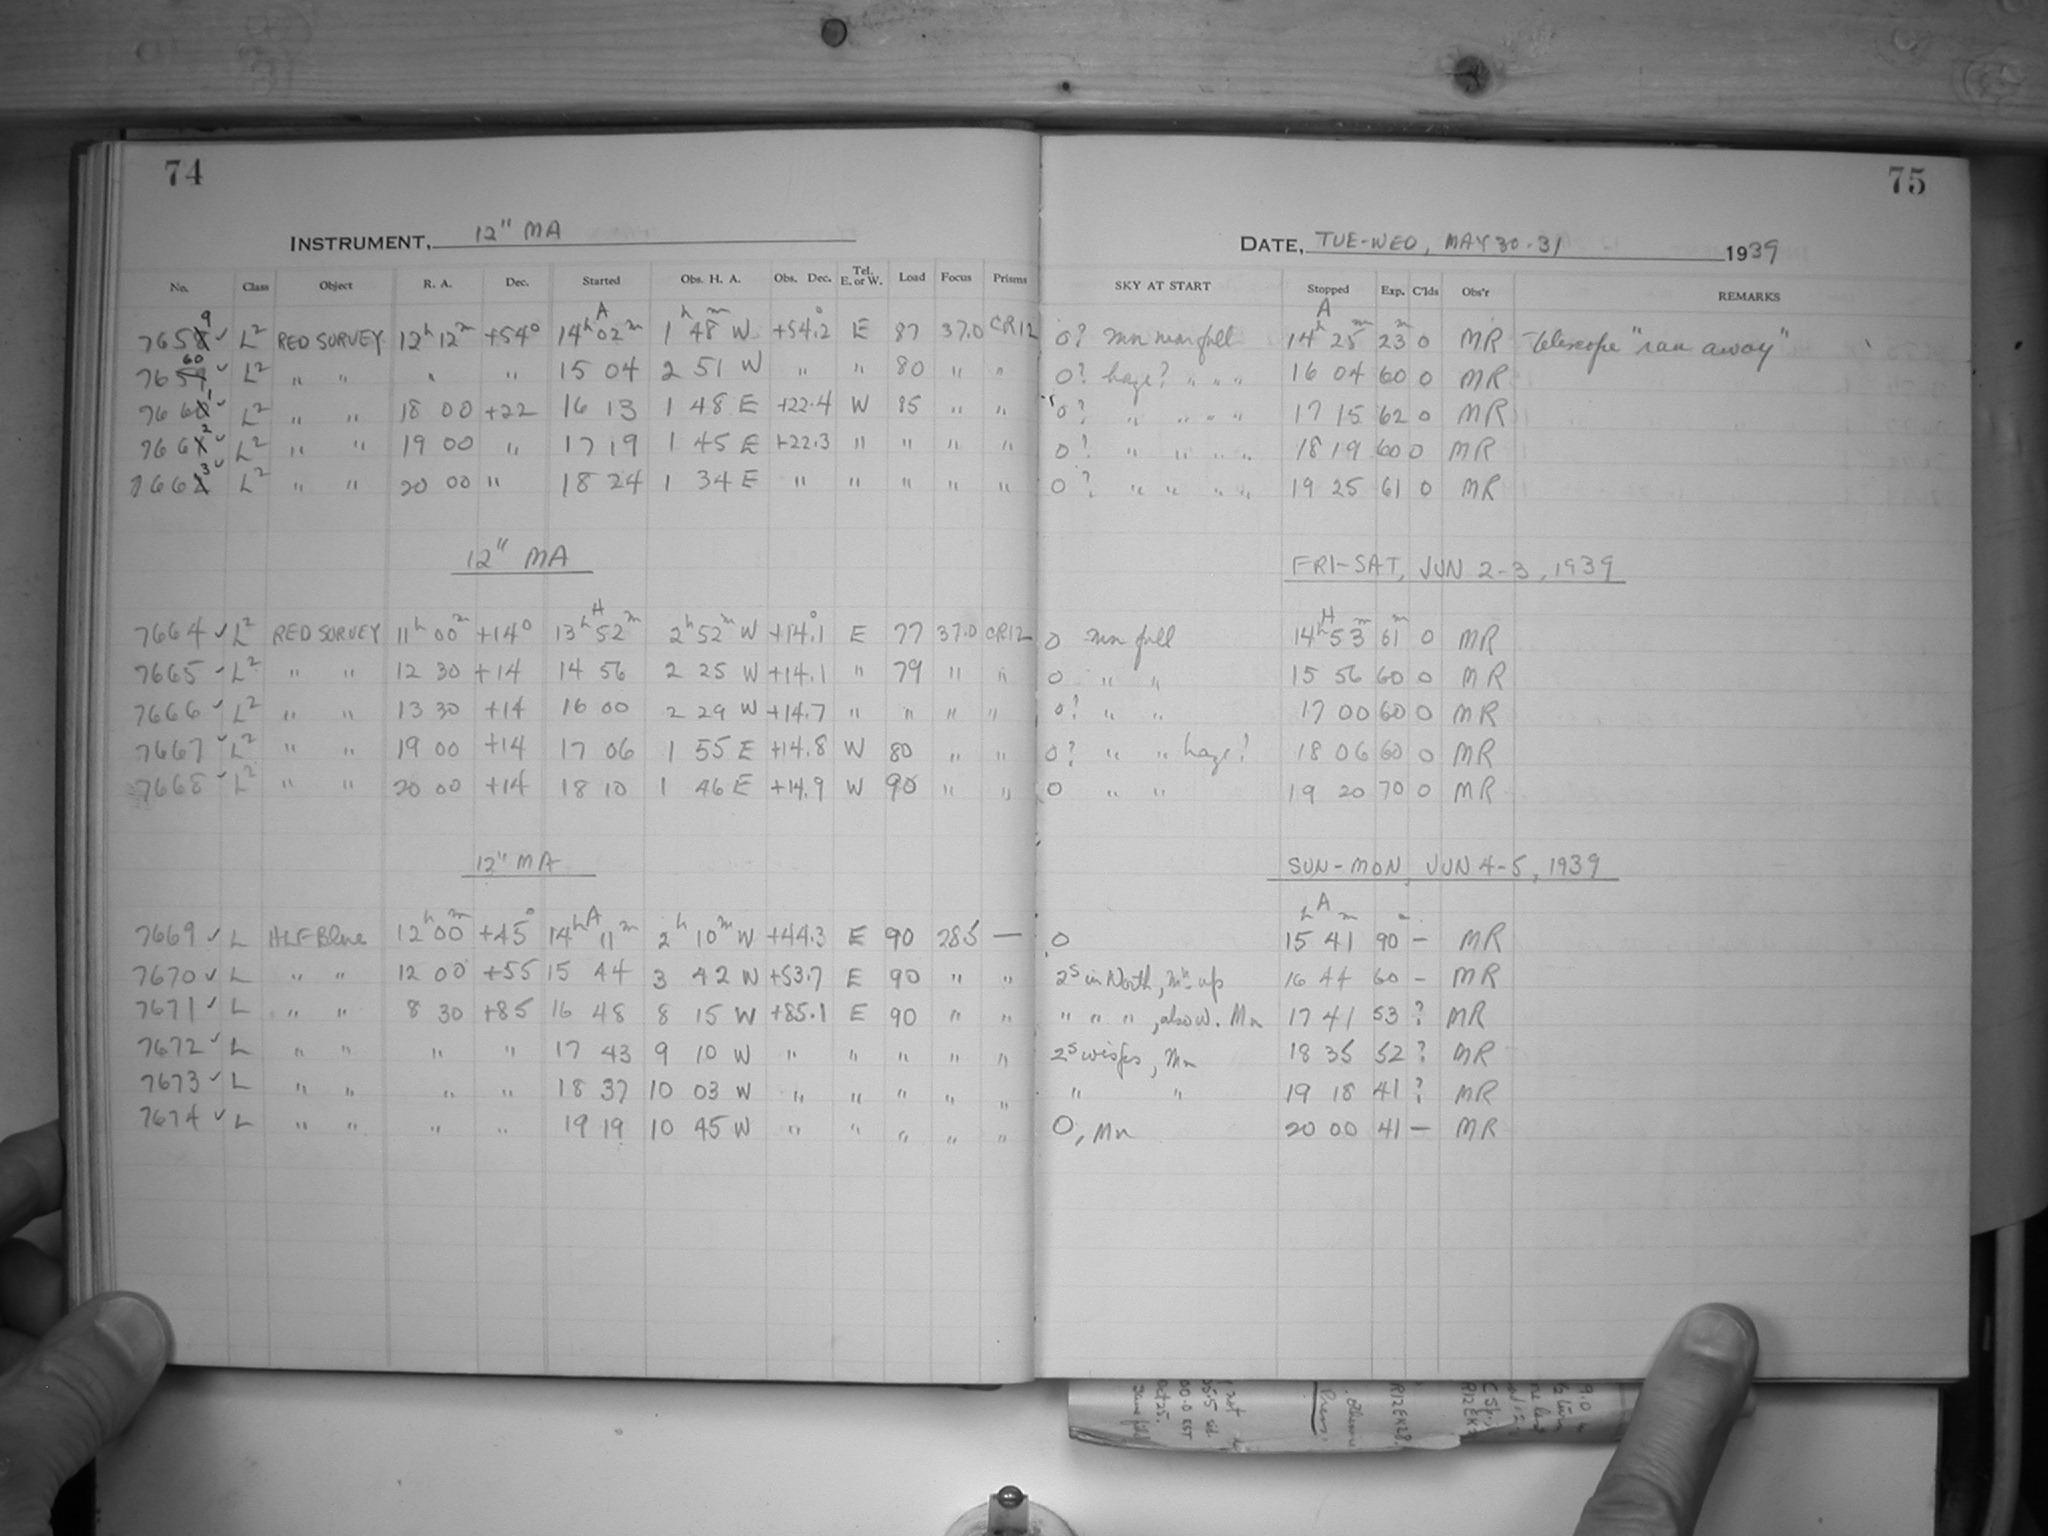 74
INSTRUMENT, 12" MA
No. Class Object R. A. Dec. Started Obs. H. A. Obs. Dec. Tel. E. or W. Load Focus Prisms
7659 ✓ L² RED SURVEY 12ʰ 12ᵐ +54° 14ʰ A 02ᵐ 1ʰ 48ᵐ W +54.2° E 87 37.0 CR12
7660 ✓ L² " " " " 15 04 2 51 W " " 80 " "
7661 ✓ L² " " 18 00 +22 16 13 1 48 E +22.4 W 85 " "
7662 ✓ L² " " 19 00 " 17 19 1 45 E +22.3 " " " "
7663 ✓ L² " " 20 00 " 18 24 1 34 E " " " " "
12" MA
7664 ✓ L² RED SURVEY 11ʰ 00ᵐ +14° 13ʰ H 52ᵐ 2ʰ 52ᵐ W +14.1° E 77 37.0 CR12
7665 ✓ L² " " 12 30 +14 14 56 2 25 W +14.1 " 79 " "
7666 ✓ L² " " 13 30 +14 16 00 2 29 W +14.7 " " " "
7667 ✓ L² " " 19 00 +14 17 06 1 55 E +14.8 W 80 " "
7668 ✓ L² " " 20 00 +14 18 10 1 46 E +14.9 W 90 " "
12" MA
7669 ✓ L HLF Blue 12ʰ 00ᵐ +45° 14ʰ A 11ᵐ 2ʰ 10ᵐ W +44.3 E 90 28.5 —
7670 ✓ L " " 12 00 +55 15 44 3 42 W +53.7 E 90 " "
7671 ✓ L " " 8 30 +85 16 48 8 15 W +85.1 E 90 " "
7672 ✓ L " " " " 17 43 9 10 W " " " " "
7673 ✓ L " " " " 18 37 10 03 W " " " " "
7674 ✓ L " " " " 19 19 10 45 W " " " " "
75
DATE, TUE-WED, MAY 30-31 1939
SKY AT START Stopped Exp. C'lds Obs'r REMARKS
0? mn near full 14ʰ A 25ᵐ 23ᵐ 0 MR Telescope "ran away"
0? haze? " " " 16 04 60 0 MR
0? " " " " 17 15 62 0 MR
0? " " " " 18 19 60 0 MR
0? " " " " 19 25 61 0 MR
FRI-SAT, JUN 2-3, 1939
0 mn full 14ʰ H 53ᵐ 61ᵐ 0 MR
0 " " 15 56 60 0 MR
0? " " 17 00 60 0 MR
0? " " haze? 18 06 60 0 MR
0 " " 19 20 70 0 MR
SUN-MON, JUN 4-5, 1939
0 15ʰ A 41ᵐ 90 - MR
2ˢ in North, Mn up 16 44 60 - MR
" " ", also w. Mn 17 41 53 ? MR
2ˢ wisps, Mn 18 35 52 ? MR
" " 19 18 41 ? MR
0, Mn 20 00 41 - MR